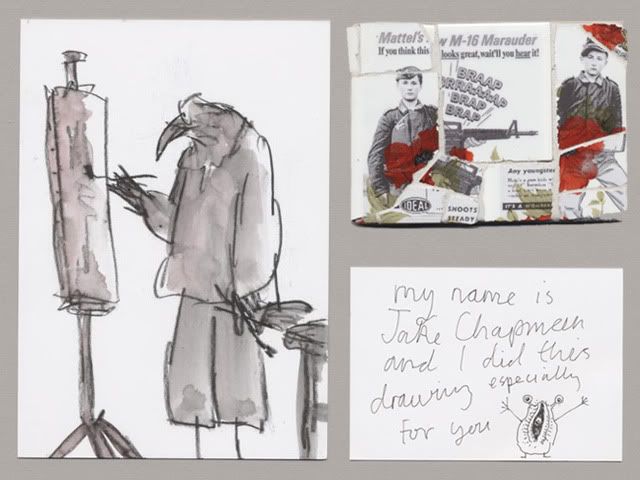 Mattel's w M-16 Marauder
If you think this looks great, wait'll you hear it!
BRAAP
BRAP
Any youngster
IDEAL
SHOOTS
STEADY
my name is
Jake Chapman
and I did this
drawing especially
for you